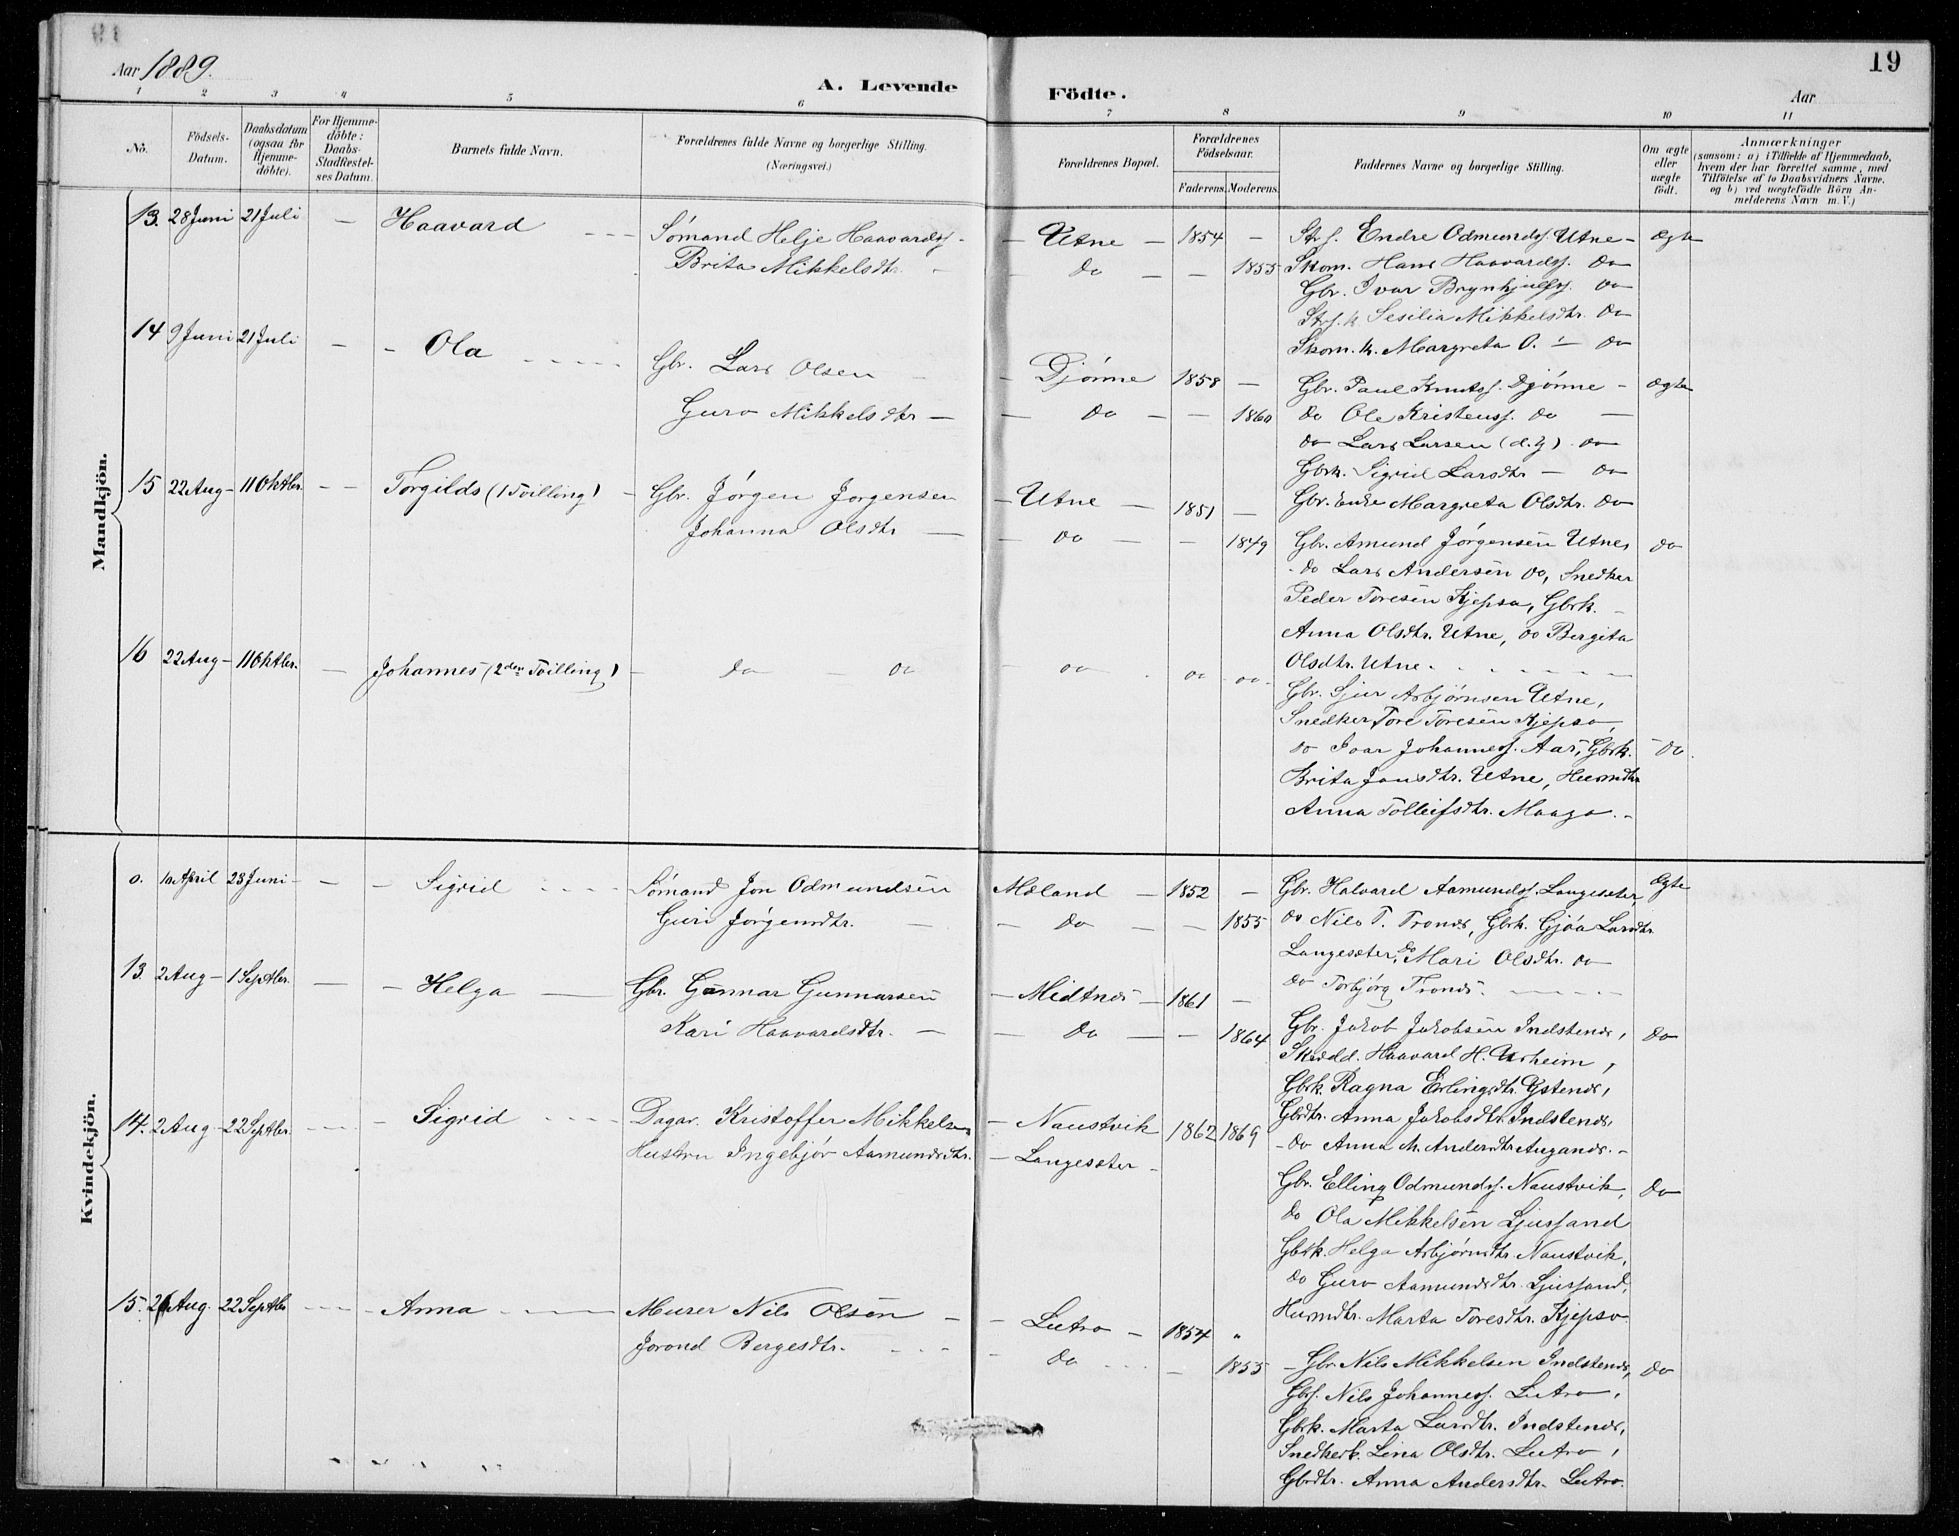 19
Aar 1889.
A. Levende Födte.
Aar
1 2 3 4 5 6 7 8 9 10 11
No.
Födsels-Datum.
Daabsdatum (ogsaa for Hjemme-döbte).
For Hjemme-döbte: Daabs-Stadfestel-ses Datum.
Barnets fulde Navn.
Forældrenes fulde Navne og borgerlige Stilling. (Næringsvei.)
Forældrenes Bopæl.
Forældrenes Födselsaar.
Faderens. Moderens.
Faddernes Navne og borgerlige Stilling.
Om ægte eller uægte født.
Anmærkninger
(saasom: a) i Tilfælde af Hjemmedaab,
hvem der har forrettet samme, med
Tilföielse af to Daabsvidners Navne.
og b) ved uægtefödte Börn An-
melderens Navn m. V.)
Mandkjön.
13. 28 Juni 21 Juli — Haavard — Sømand Helje Haavards. — Utne — 1854 —
Brita Mikkelsdtr. — do — — 1855
Strs. Endre Odmunds. Utne — Ægte
Skom. Hans Haavards. do
Gbr. Ivar Brynhjulfs. do
Strs. k. Sesilia Mikkelsdtr. do
Skom. k. Margreta O. — do
14 9 Juni 21 Juli — Ola — Gbr. Lars Olsen — Djønne 1858 —
Guro Mikkelsdtr — do — — 1860
Gbr. Paul Knuts. Djønne — Ægte
do Ole Kristens. do —
do Lars Larsen (d. y) do
Gbrk. Sigrid Larsdtr — do
Gbr. Enke Margreta Olsdtr. do
15 22 Aug — 11 Oktbr. — Torgilds (1 Tvilling) — Gbr. Jørgen Jørgensen — Utne — 1851 —
Johanna Olsdtr — do — — 1849
Gbr. Amund Jørgensen Utne, do
do Lars Andersen do, Snedker
Peder Toresen Kjepso, Gbrk. —
Anna Olsdtr. Utne, do Bergita
Olsdtr. Utne.
16 22 Aug — 11 Oktbr. — Johannes (2den Tvilling) — do — do — do do do
Gbr. Sjur Asbjørnsen Utne,
Snedker Tore Toresen Kjepso,
do Ivar Johanness. Aar, Gbrk. — do.
Brita Jonsdtr. Utne, Husmdtr
Anna Tolleifsdtr. Maage. —
Kvindekjön.
0. 10 April 23 Juni — Sigrid — Sømand Jon Odmundsen Mæland — 1852 —
Guri Jørgensdtr. — do — — 1855
Gbr. Halvard Aamunds. Langesæter, Ægte
do Nils T. Tronds, Gbrk. Gjøa Larsdtr.
Langesæter, do Mari Olsdtr. do
do Torbjørg Tronds.
13. 2 Aug — 1 Septbr. — Helga — Gbr. Gunnar Gunnarsen — Midtnes — 1861 —
Kari Haavardsdtr. — do — — 1864
Gbr. Jakob Jakobsen Indstenes, do
Skrædd. Haavard H. Urheim,
Gbrk. Ragna Erlingsdtr. Ystenes,
Gbrdtr. Anna Jakobsdtr. Indstenes,
— do Anna M. Andersdtr Augands. —
14. 2 Aug — 22 Septbr. — Sigrid — Dagar. Kristoffer Mikkelsen — Naustvik 1862 1869
Hustru Ingebjør Aamundsdtr. — Langesæter —
Gbr. Elling Odmunds. Naustvik, do
do Ola Mikkelsen Ljussand
Gbrk. Helga Asbjørnsdtr. Naustvik,
do Guro Aamundsdtr. Ljussand,
Husmdtr. Marta Toresdtr. Kjepso
15. 26 Aug. 22 Septbr — Anna — Murer Nils Olsen — Lutro — 1854 "
Jorond Bergesdtr. — do — 1855
— Gbr Nils Mikkelsen Indstenes, do
Gbs. Nils Johanness. Lutro,
Gbrk. Marta Larsdtr. Indstenes,
Snedkerk. Lina Olsdtr. Lutro,
Gbrdtr. Anna Andersdtr. Lutro.